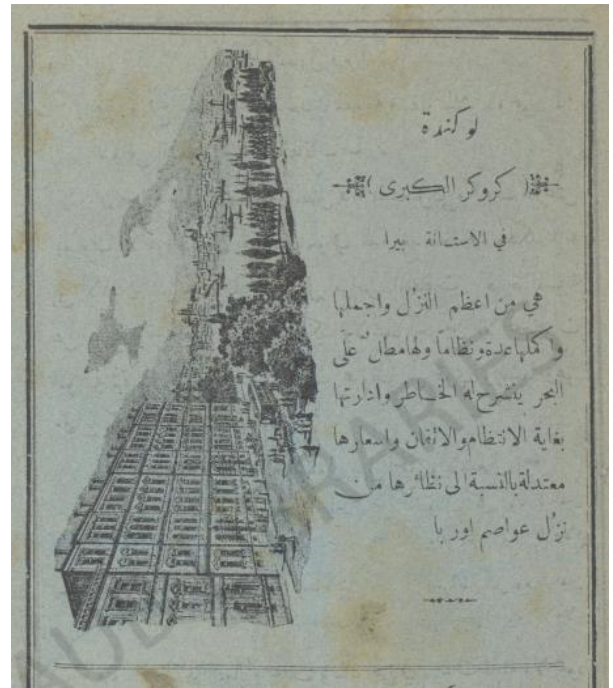 لوكندة
﴿ كروكر الكبرى ﴾
في الاستانة بيرا
هي من اعظم النزُل واجملها
واكملها عدة ونظاماً ولها مطلّ علَى
البحر ينشرح له الخاطر وادارتها
بغاية الانتظام والاتقان واسعارها
معتدلة بالنسبة الى نظائرها من
نزُل عواصم اوربا
AUB LIBRARIES